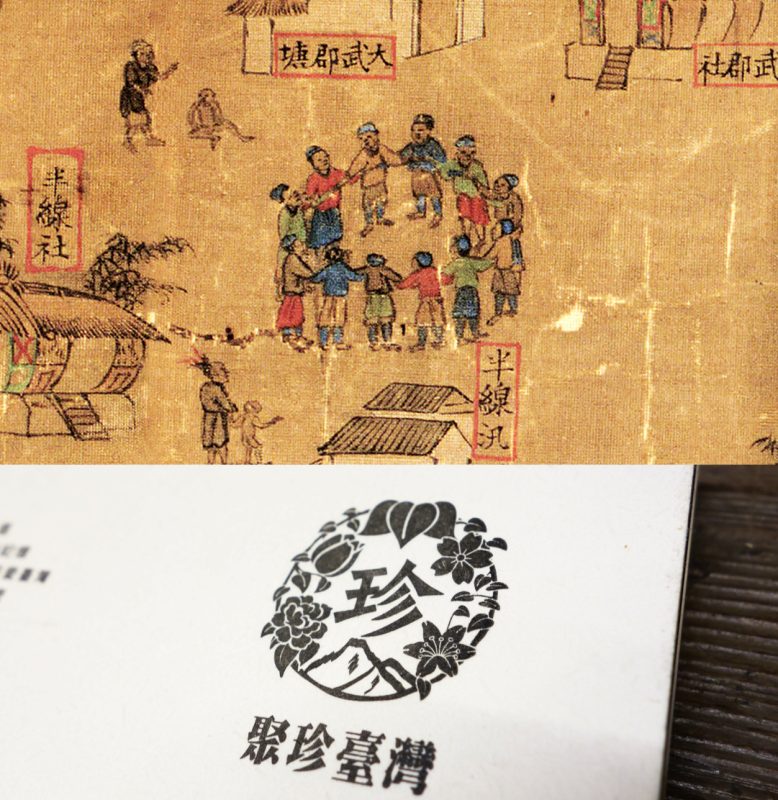 大武郡塘
武郡社
半線社
半線汛
珍
聚珍臺灣